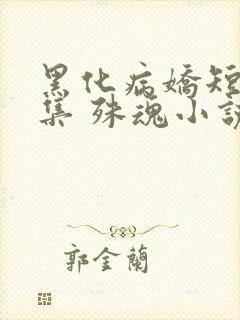 黑化病嬌短
集 殊魂小說
郭金蘭